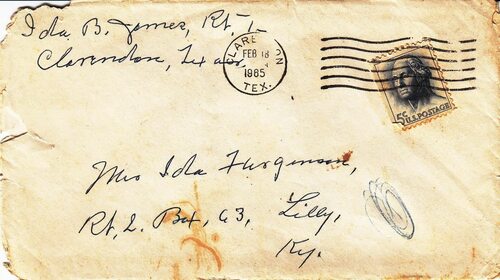 Ida B. James, Rt. 1
Clarendon, Texas
CLARENDON
FEB 18
1965
TEX.
5¢
U.S. POSTAGE
Mrs Ida Furgerson,
Rt. 2. Box, 63, Lilly,
Ky.